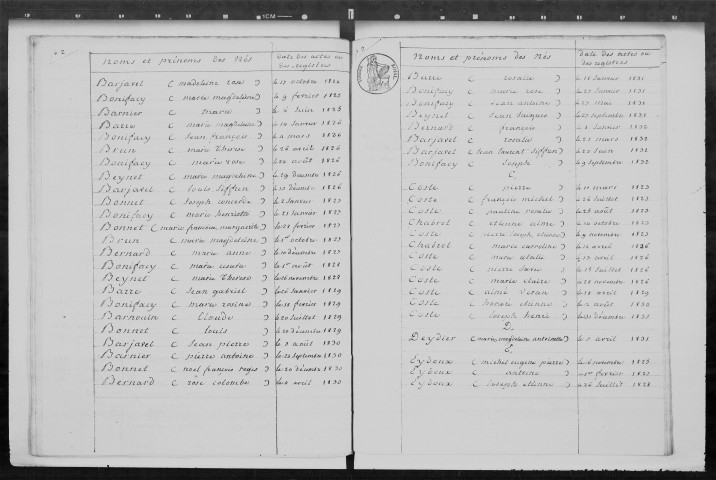 42
Noms et prénoms des Nés
date des actes ou des registres
Barjavel ( madeleine rose ) le 17 octobre 1824
Bonifacy ( marie magdeleine ) le 9 fevrier 1825
Barnier ( marie ) le 6 Juin 1825
Barre ( marie magdeleine ) le 14 Janvier 1826
Bonifacy ( Jean françois ) le 4 mars 1826
Brun ( marie therese ) le 26 avril 1826
Bonifacy ( marie rose ) le 22 août 1826
Beynet ( marie magdeleine ) le 29 décembre 1826
Barjavel ( louis siffren ) le 10 décembre 1826
Bonnet ( Joseph ) le 2 Janvier 1827
Bonifacy ( marie henriette ) le 21 Janvier 1827
Bonnet ( marie francoise marguerite ) le 28 fevrier 1827
Brun ( marie magdeleine ) le 1er octobre 1827
Bernard ( marie anne ) le 10 décembre 1827
Bonifacy ( marie ) le 1er août 1828
Beynet ( marie therese ) le 16 novembre 1828
Barre ( Jean gabriel ) le 26 Janvier 1829
Bonifacy ( marie rosine ) le 18 fevrier 1829
( Claude ) le 20 Juillet 1829
Bonnet ( louis ) le 20 décembre 1829
Barjavel ( Jean pierre ) le 3 août 1830
Barnier ( pierre antoine ) le 22 septembre 1830
Bonnet ( noel françois regis ) le 20 décembre 1830
Bernard ( rose colombe ) le 4 avril 1830
Noms et prénoms des Nés
date des actes ou des registres
Barre ( rosalie ) le 11 Janvier 1831
Bonifacy ( marie rose ) le 25 Janvier 1831
Bonifacy ( Jean antoine ) le 27 mai 1831
Beynet ( Jean Jacques ) le 25 septembre 1831
Bernard ( françois ) le 2 Janvier 1832
Barjavel ( rosalie ) le 21 mars 1832
Barjavel ( Jean laurent Siffren ) le 25 Juin 1832
Bonifacy ( Joseph ) le 9 septembre 1832
C.
Coste ( pierre ) le 11 mars 1823
Coste ( françois michel ) le 26 Juillet 1823
Coste ( pauline rosalie ) le 28 août 1823
Chabrol ( etienne aimé ) le 10 octobre 1823
Coste ( pierre Joseph ) le 9 novembre 1823
Chabrol ( marie caroline ) le 14 avril 1826
Coste ( marie ) le 17 avril 1825
Coste ( pierre ) le 18 Juillet 1825
Coste ( marie claire ) le 28 novembre 1826
Coste ( aimé ) le 18 avril 1829
Coste ( etienne ) le 2 août 1830
Coste ( Joseph henri ) le 31 décembre 1831
D.
Deydier ( marie magdeleine antoinette ) le 5 avril 1831
E.
Eydoux ( michel eugene pierre ) le 6 novembre 1825
Eydoux ( antoine ) le 1er fevrier 1827
Eydoux ( Joseph etienne ) le 26 Juillet 1828